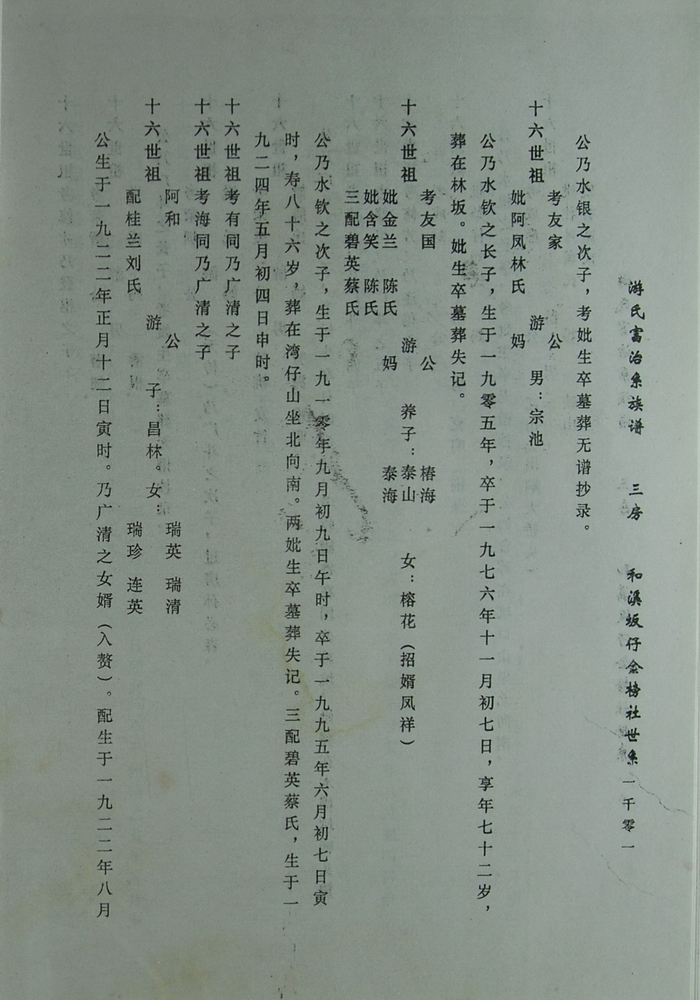 游氏富治系族谱 三房 和溪坂仔金榜社世系 一千零一
公乃水银之次子，考妣生卒墓葬无谱抄录。
考友家 公
十六世祖 游 男：宗池
妣阿凤林氏 妈
公乃水钦之长子，生于一九零五年，卒于一九七六年十一月初七日，享年七十二岁，
葬在林坂。妣生卒墓葬失记。
考友国 公 椿海
十六世祖 游 养子：泰山 女：榕花（招婿凤祥）
妣金兰 陈氏 妈 泰海
妣含笑 陈氏
三配碧英蔡氏
公乃水钦之次子，生于一九一零年九月初九日午时，卒于一九九五年六月初七日寅
时，寿八十六岁，葬在湾仔山坐北向南。两妣生卒墓葬失记。三配碧英蔡氏，生于一
九二四年五月初四日申时。
十六世祖考有同乃广清之子
十六世祖考海同乃广清之子
阿和 公 瑞英 瑞清
十六世祖 游 子：昌林。女：
配桂兰刘氏 瑞珍 连英
公生于一九二二年正月十二日寅时。乃广清之女婿（入赘）。配生于一九二二年八月